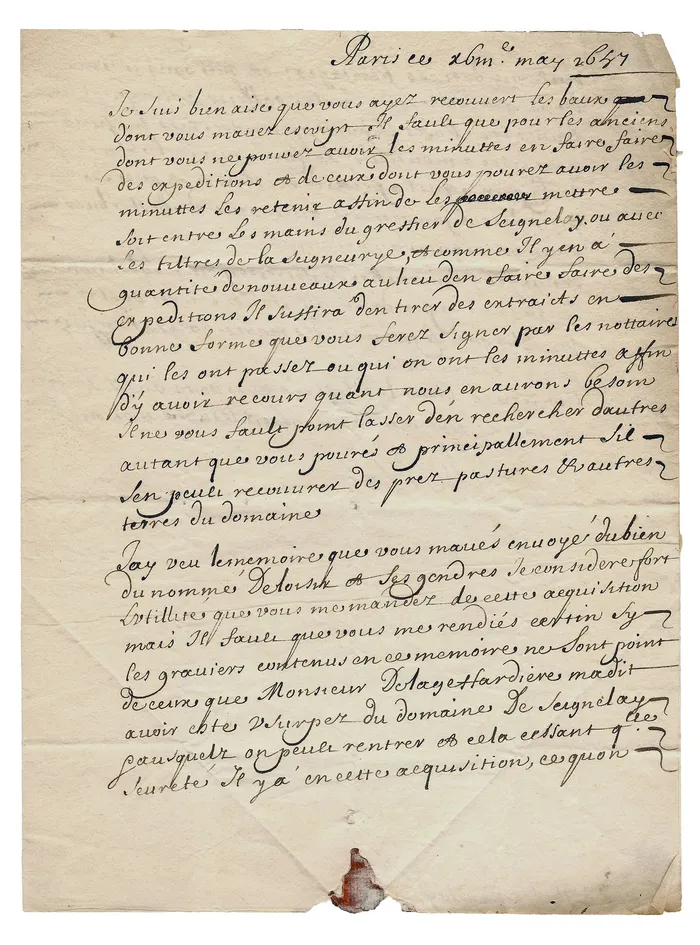 Paris ce 16me. may 1657
Je suis bien aise que vous ayez recouvert les baux
dont vous mavez escript Il fault que pour les anciens
dont vous ne pouvez avoir les minuttes en faire faire
des expeditions et de ceux dont vous pourez avoir les
minuttes les retenir affin de les mettre
soit entre les mains du greffier de Seignelay, ou avec
les tiltres de la seigneurye et comme Il y en a
quantité de nouveaux au lieu den faire faire des
expeditions Il suffira den tirer des extraicts en
bonne forme que vous ferez signer par les nottaires
qui les ont passez ou qui en ont les minuttes affin
d'y avoir recours quant nous en aurons besoin
Il ne vous fault point lasser den rechercher dautres
autant que vous pourés et principallement sil
sen peult recouvrer des prez pastures & autres
terres du domaine
Jay veu le memoire que vous mavés envoyé du bien
du nommé Deloisir et ses gendres Je considere fort
Lutillité que vous me mandez de cette acquisition
mais Il fault que vous me rendiés certin sy
les graviers contenus en ce memoire ne sont point
de ceux que Monsieur Delagehardiere madit
avoir esté usurpez du domaine De Seignelay
ausquelz on peult rentrer et cela cessant
seureté Il y a en cette acquisition, ce quon